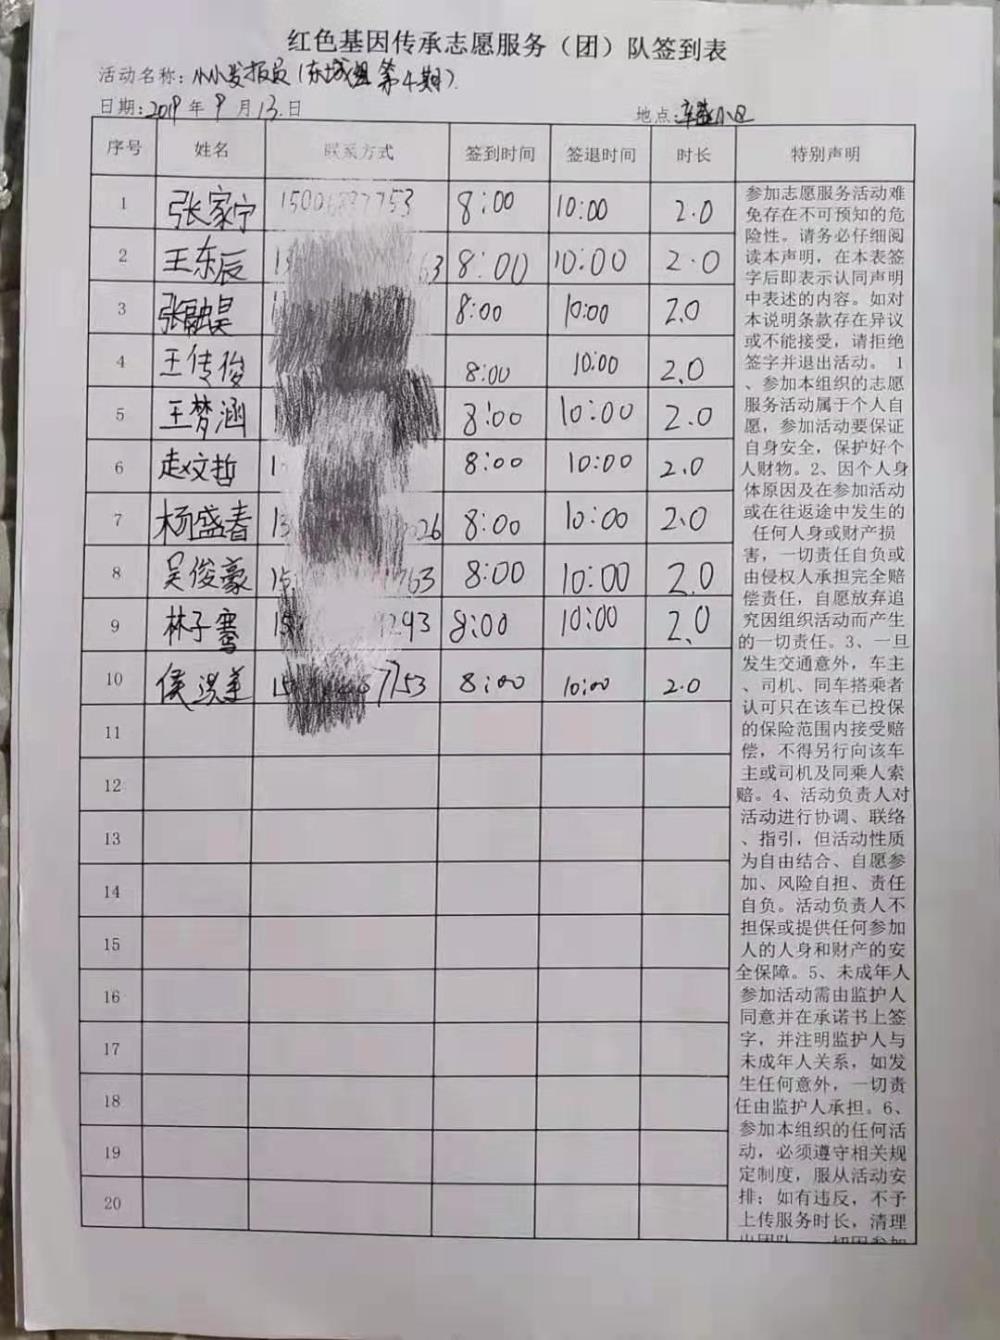 红色基因传承志愿服务（团）队签到表
活动名称：小小发报员（东城组第4期）
日期：2019年9月13日 地点：小区
序号 姓名 联系方式 签到时间 签退时间 时长 特别声明
1 张家宁 8:00 10:00 2.0
2 王东辰 63 8:00 10:00 2.0
3 张融昊 8:00 10:00 2.0
4 王传俊 8:00 10:00 2.0
5 王梦涵 8:00 10:00 2.0
6 赵文哲 1 8:00 10:00 2.0
7 杨盛春 13 26 8:00 10:00 2.0
8 吴俊豪 15 763 8:00 10:00 2.0
9 林子骞 15 293 8:00 10:00 2.0
10 侯 15 7753 8:00 10:00 2.0
11
12
13
14
15
16
17
18
19
20
参加志愿服务活动难
免存在不可预知的危
险性。请务必仔细阅
读本声明，在本表签
字后即表示认同声明
中表述的内容。如对
本说明条款存在异议
或不能接受，请拒绝
签字并退出活动。 1
、参加本组织的志愿
服务活动属于个人自
愿，参加活动要保证
自身安全，保护好个
人财物。2、因个人身
体原因及在参加活动
或在往返途中发生的
任何人身或财产损
害，一切责任自负或
由侵权人承担完全赔
偿责任，自愿放弃追
究因组织活动而产生
的一切责任。3、一旦
发生交通意外，车主
、司机、同车搭乘者
认可只在该车已投保
的保险范围内接受赔
偿，不得另行向该车
主或司机及同乘人索
赔。4、活动负责人对
活动进行协调、联络
、指引，但活动性质
为自由结合、自愿参
加、风险自担、责任
自负。活动负责人不
担保或提供任何参加
人的人身和财产的安
全保障。5、未成年人
参加活动需由监护人
同意并在承诺书上签
字，并注明监护人与
未成年人关系，如发
生任何意外，一切责
任由监护人承担。6、
参加本组织的任何活
动，必须遵守相关规
定制度，服从活动安
排；如有违反，不予
上传服务时长，清理
出团队。一切因参加